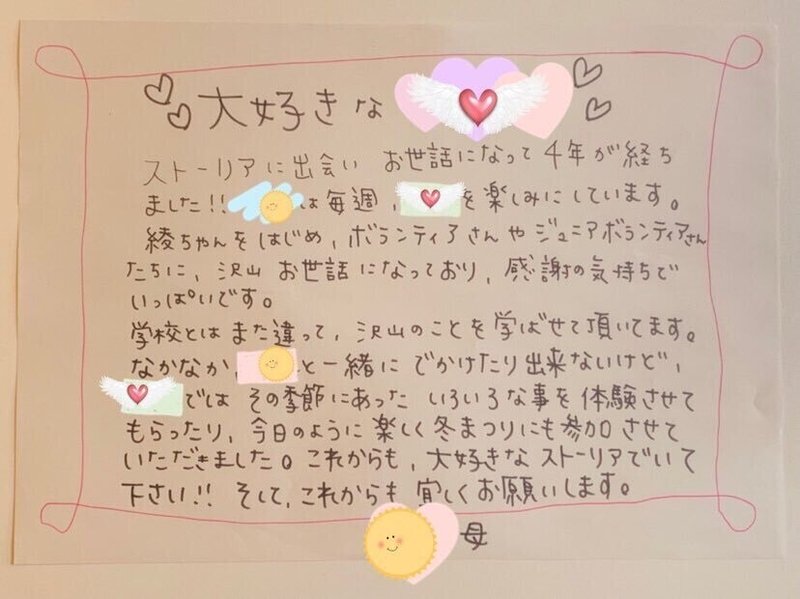 大好きな
ストーリアに出会い お世話になって4年が経ち
ました!! は毎週、を楽しみにしています。
綾ちゃんをはじめ、ボランティアさんやジュニアボランティアさん
たちに、沢山 お世話になっており、感謝の気持ちで
いっぱいです。
学校とはまた違って、沢山のことを学ばせて頂いてます。
なかなか、と一緒に でかけたり出来ないけど、
では その季節にあった いろいろな事を体験させて
もらったり、今日のように楽しく冬まつりにも参加させて
いただきました。これからも、大好きな ストーリアでいて
下さい!! そして、これからも 宜しくお願いします。
母